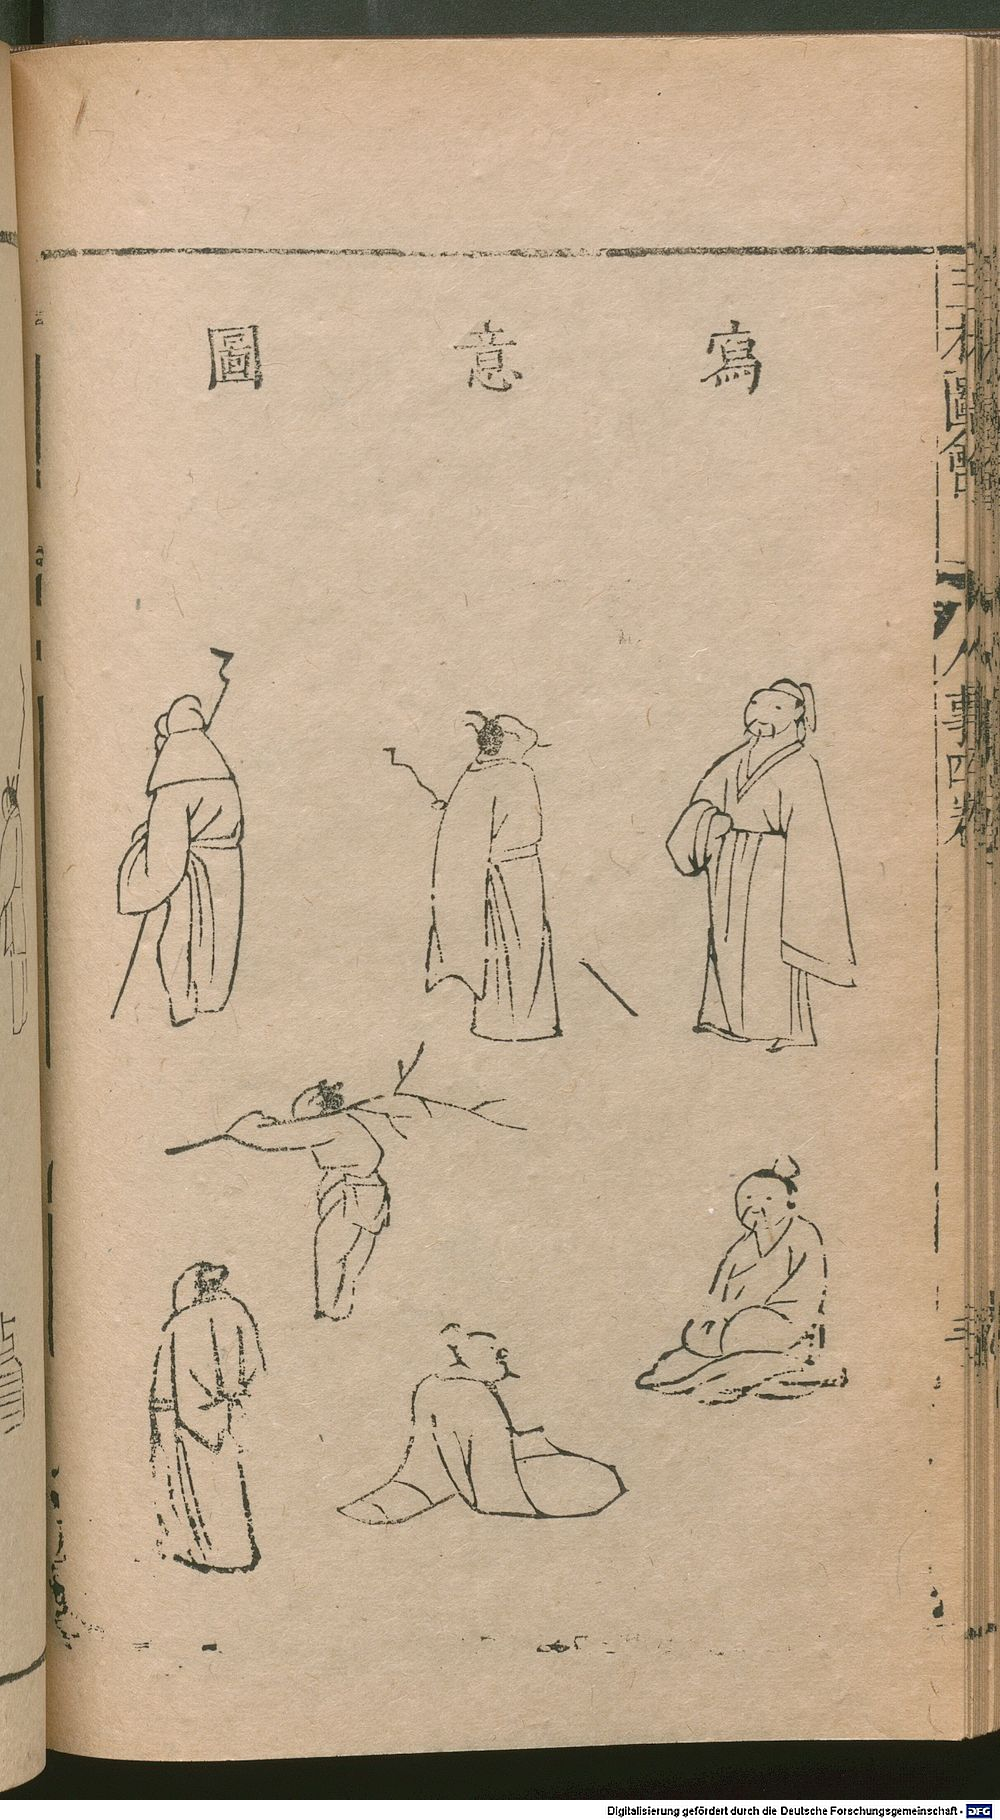 寫意圖
三才圖會
人事四卷
Digitalisierung gefördert durch die Deutsche Forschungsgemeinschaft - DFG